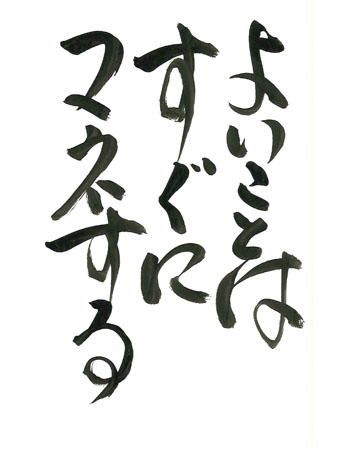 よいことは
すぐに
マネする